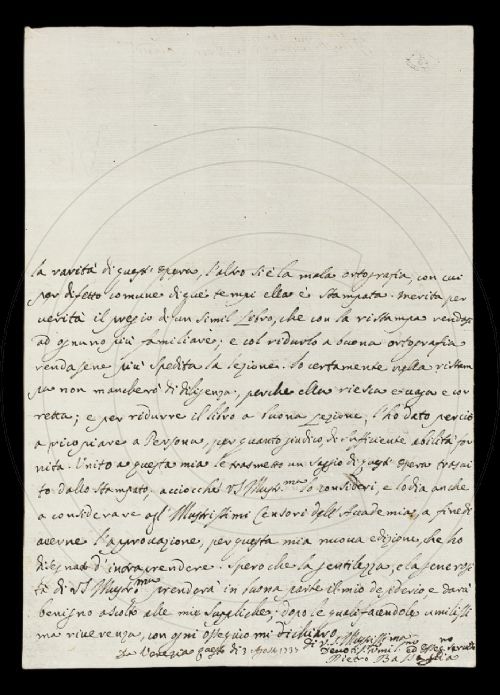 la rarità di quest'opera, l'altro si è la mala ortografia, con cui
per difetto comune di que' tempi ella è stampata. Merita per
verità il pregio di un simil Lebro, che con la ristampa rendasi
ad ognuno più familiare; e col ridurlo a buona ortografia
rendasene più spedita la lezione. Io certamente nella ristam
pa non mancherò di diligenza, perche ella riesca e vaga e cor
retta; e per ridurre il libro a buona Lezione, l'ho dato perciò
a ricopiare a Persona, per quanto giudico di sufficiente abilità for
nita. Unito a questa mia le trasmetto un saggio di quest'opera trascri
to dallo Stampato, acciocchè VS Illustr.ma lo consideri, e lo dia anche
a considerare agl'Illustrissimi Censori dell'Accademia, a fine di
averne l'approvazione, per questa mia nuova edizione, che ho
disegnato d'intraprendere. Spero che la gentilezza, e la generosi
tà di VS Illustr.ma prenderà in buona parte il mio desiderio e darà
benigno ascolto alle mie suppliche, dopo le quali facendole umilissi
ma riverenza, con ogni ossequio mi dichiaro
di VS Illustrissima
Da Venezia questo dì 3 1733
Pietro Bassaglia